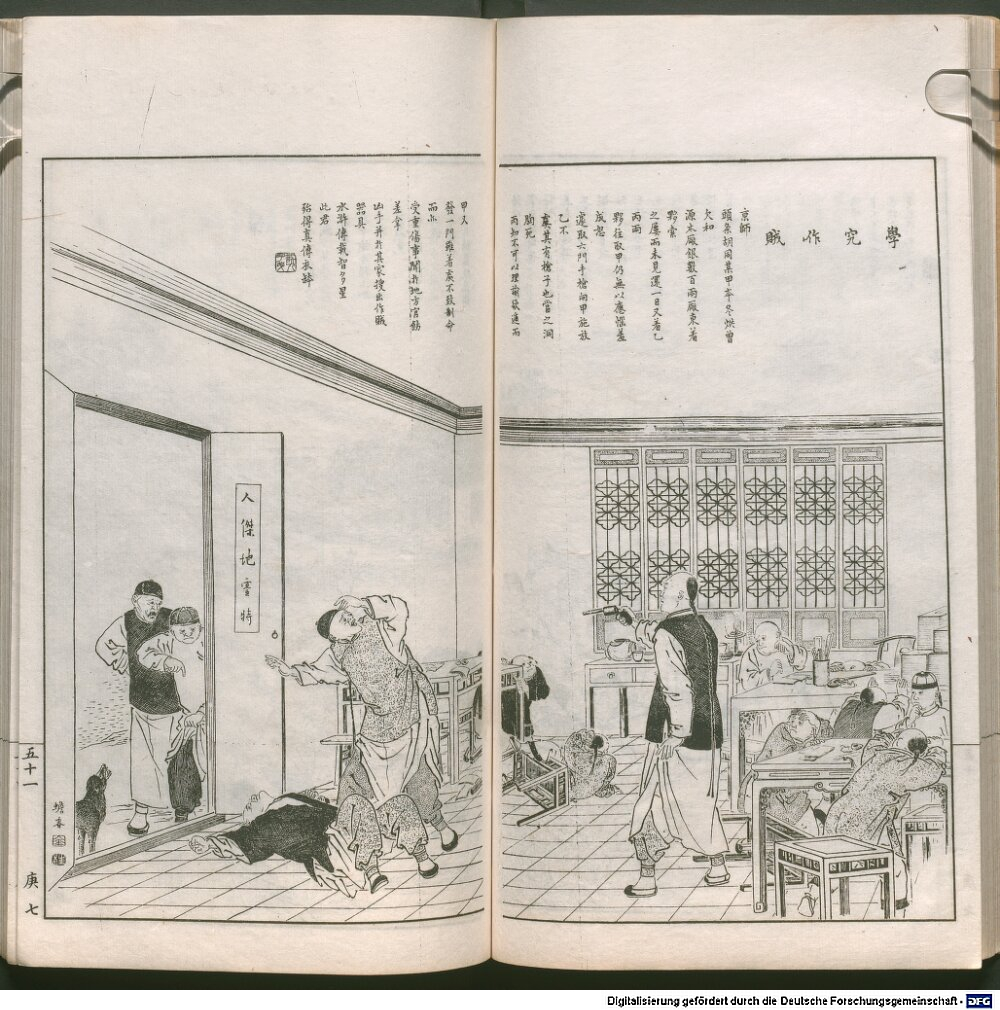 學究作賊
京師
頭条胡同某甲本冬烘曾
欠和
源木廠銀數百兩廠東着
夥索
之屢而未見還一日又着乙
丙兩
夥往取甲仍無以應惱羞
成怒
遽取六門手槍向甲施放
乙不
虞其有槍子也當之洞
胸死
丙知不可以理諭欲退而
甲又
發一門雖着處不致制命
而亦
受重傷事聞於地方官飭
差拿
凶手并於其家搜出作賊
器具
水滸傳栽智多星
此君
殆得真傳衣缽
人傑地靈時
五十一
庚
七
Digitalisierung gefördert durch die Deutsche Forschungsgemeinschaft - DFG